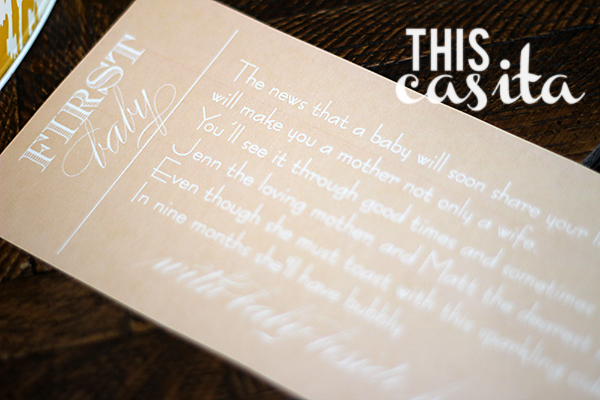 THIS
casita
FIRST
baby
The news that a baby will soon share your
will make you a mother not only a wife.
You'll see it through good times and sometimes
Jenn the loving mother, and Matt the dearest
Even though she must toast with this sparkling
In nine months she'll have bubbly
with baby